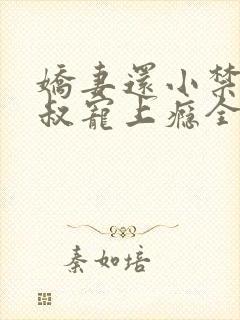 嬌妻還小禁
叔寵上癮全
秦如培